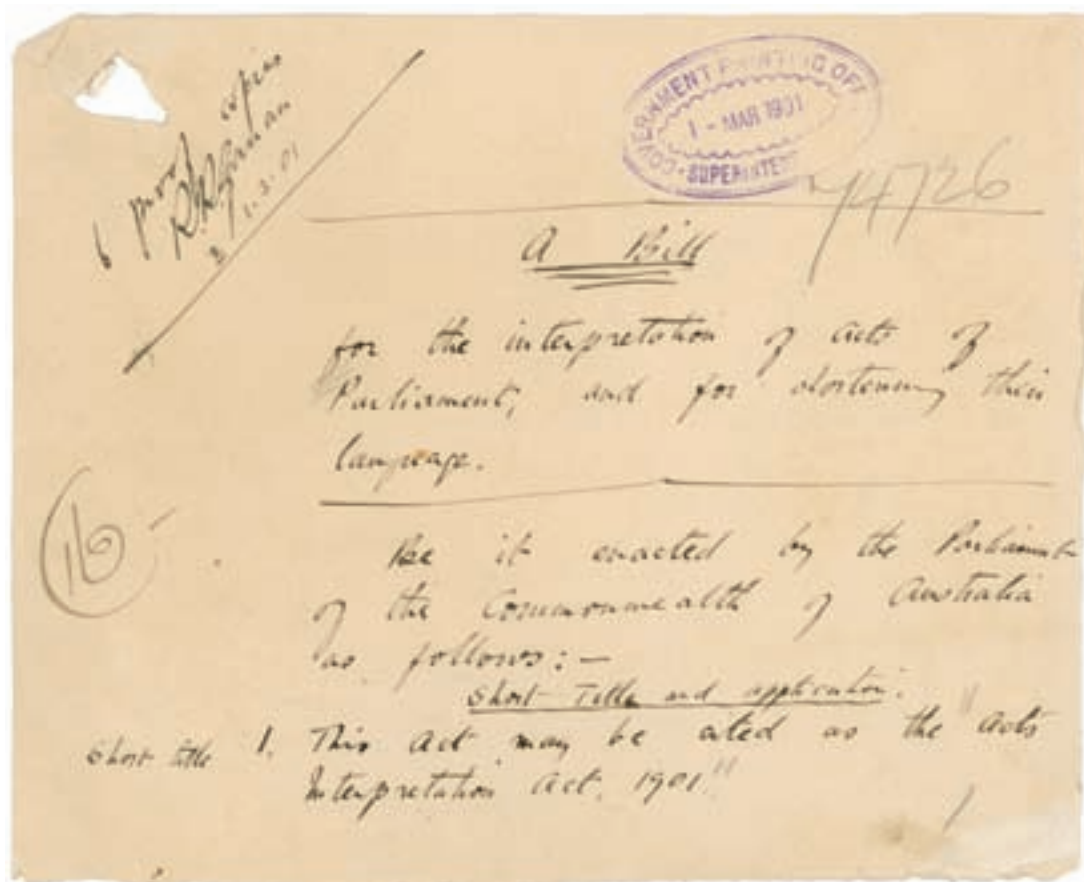 6 proof copies
R R Garran
1.3.01
GOVERNMENT PRINTING OFF
1 - MAR 1901
SUPERINTE
A Bill
for the interpretation of acts of
Parliament, and for shortening their
language.
16
Be it enacted by the Parliament
of the Commonwealth of Australia
as follows:—
Short Title and application.
Short title 1. This Act may be cited as the "Acts
Interpretation Act. 1901"